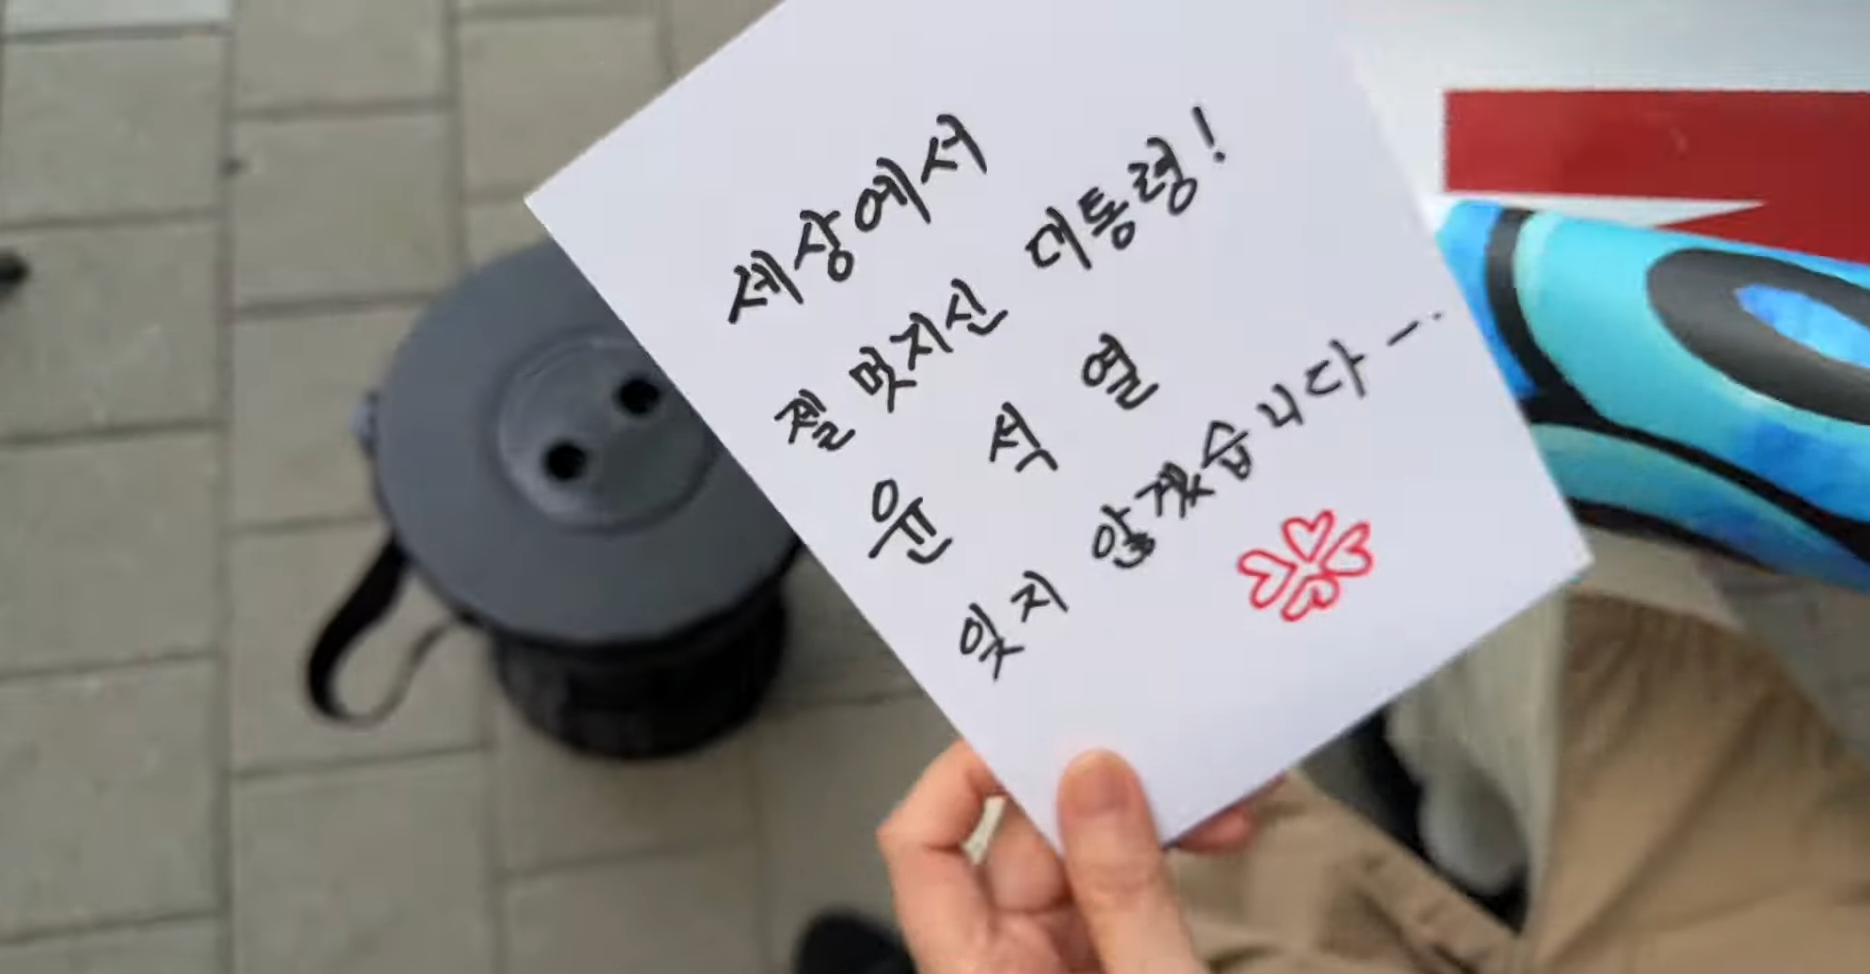 세상에서
젤 멋지신 대통령!
윤 석 열
잊지 않겠습니다 ㅡ.